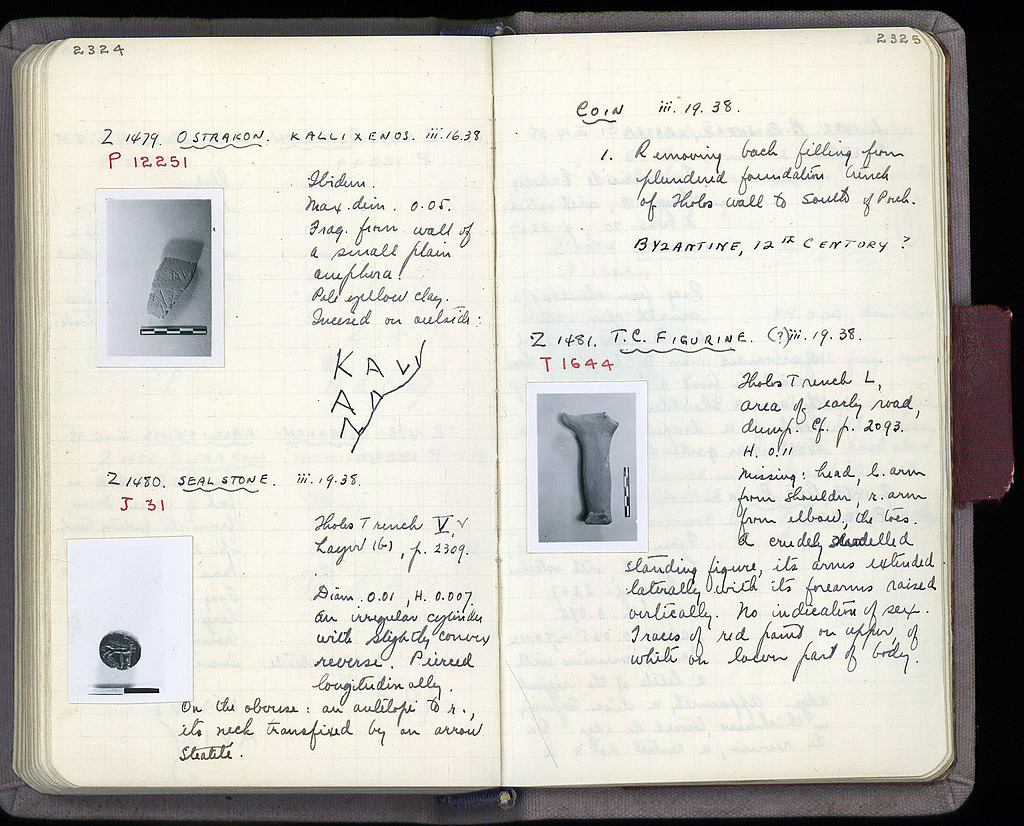 2324
Z 1479. OSTRAKON. KALLIXENOS. iii.16.38
P 12251
Ibidem.
Max. dim. 0.05.
Frag. from wall of
a small plain
amphora.
Pale yellow clay.
Incised on outside:
ΚΑΛ
Z 1480. SEAL STONE. iii.19.38.
J 31
Tholos Trench V,
Layer (b), p. 2309.
Diam. 0.01, H. 0.007
An irregular cylinder
with slightly convex
reverse. Pierced
longitudinally.
On the obverse: an antelope to r.,
its neck transfixed by an arrow
Steatite.
2325
COIN iii.19.38.
1. Removing back filling from
plundered foundation trench
of Tholos wall to South of Porch.
BYZANTINE, 12TH CENTURY ?
Z 1481. T.C. FIGURINE. (?) iii.19.38.
T 1644
Tholos Trench L,
area of early road,
dump. Cf. p. 2093.
H. 0.11
Missing: head, l. arm
from shoulder, r. arm
from elbow, the toes.
A crudely modelled
standing figure, its arms extended
laterally with its forearms raised
vertically. No indication of sex.
Traces of red paint on upper, of
white on lower part of body.